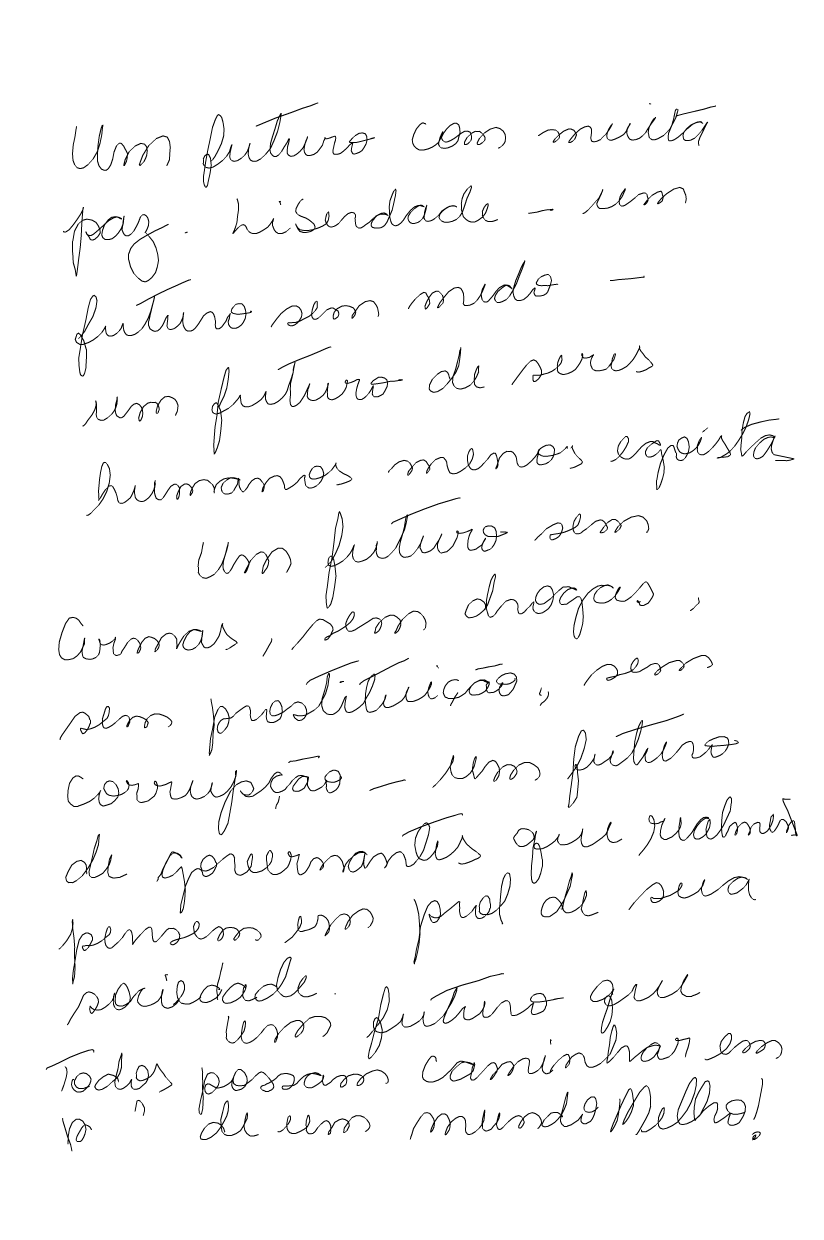 Um futuro com muita
paz. Liberdade - um
futuro sem medo -
um futuro de seres
humanos menos egoístas
Um futuro sem
Armas, sem drogas,
sem prostituição,, sem
corrupção - um futuro
de governantes que realmen
pensem em prol de sua
sociedade.
um futuro que
Todos possam caminhar em
p " de um mundo Melho!